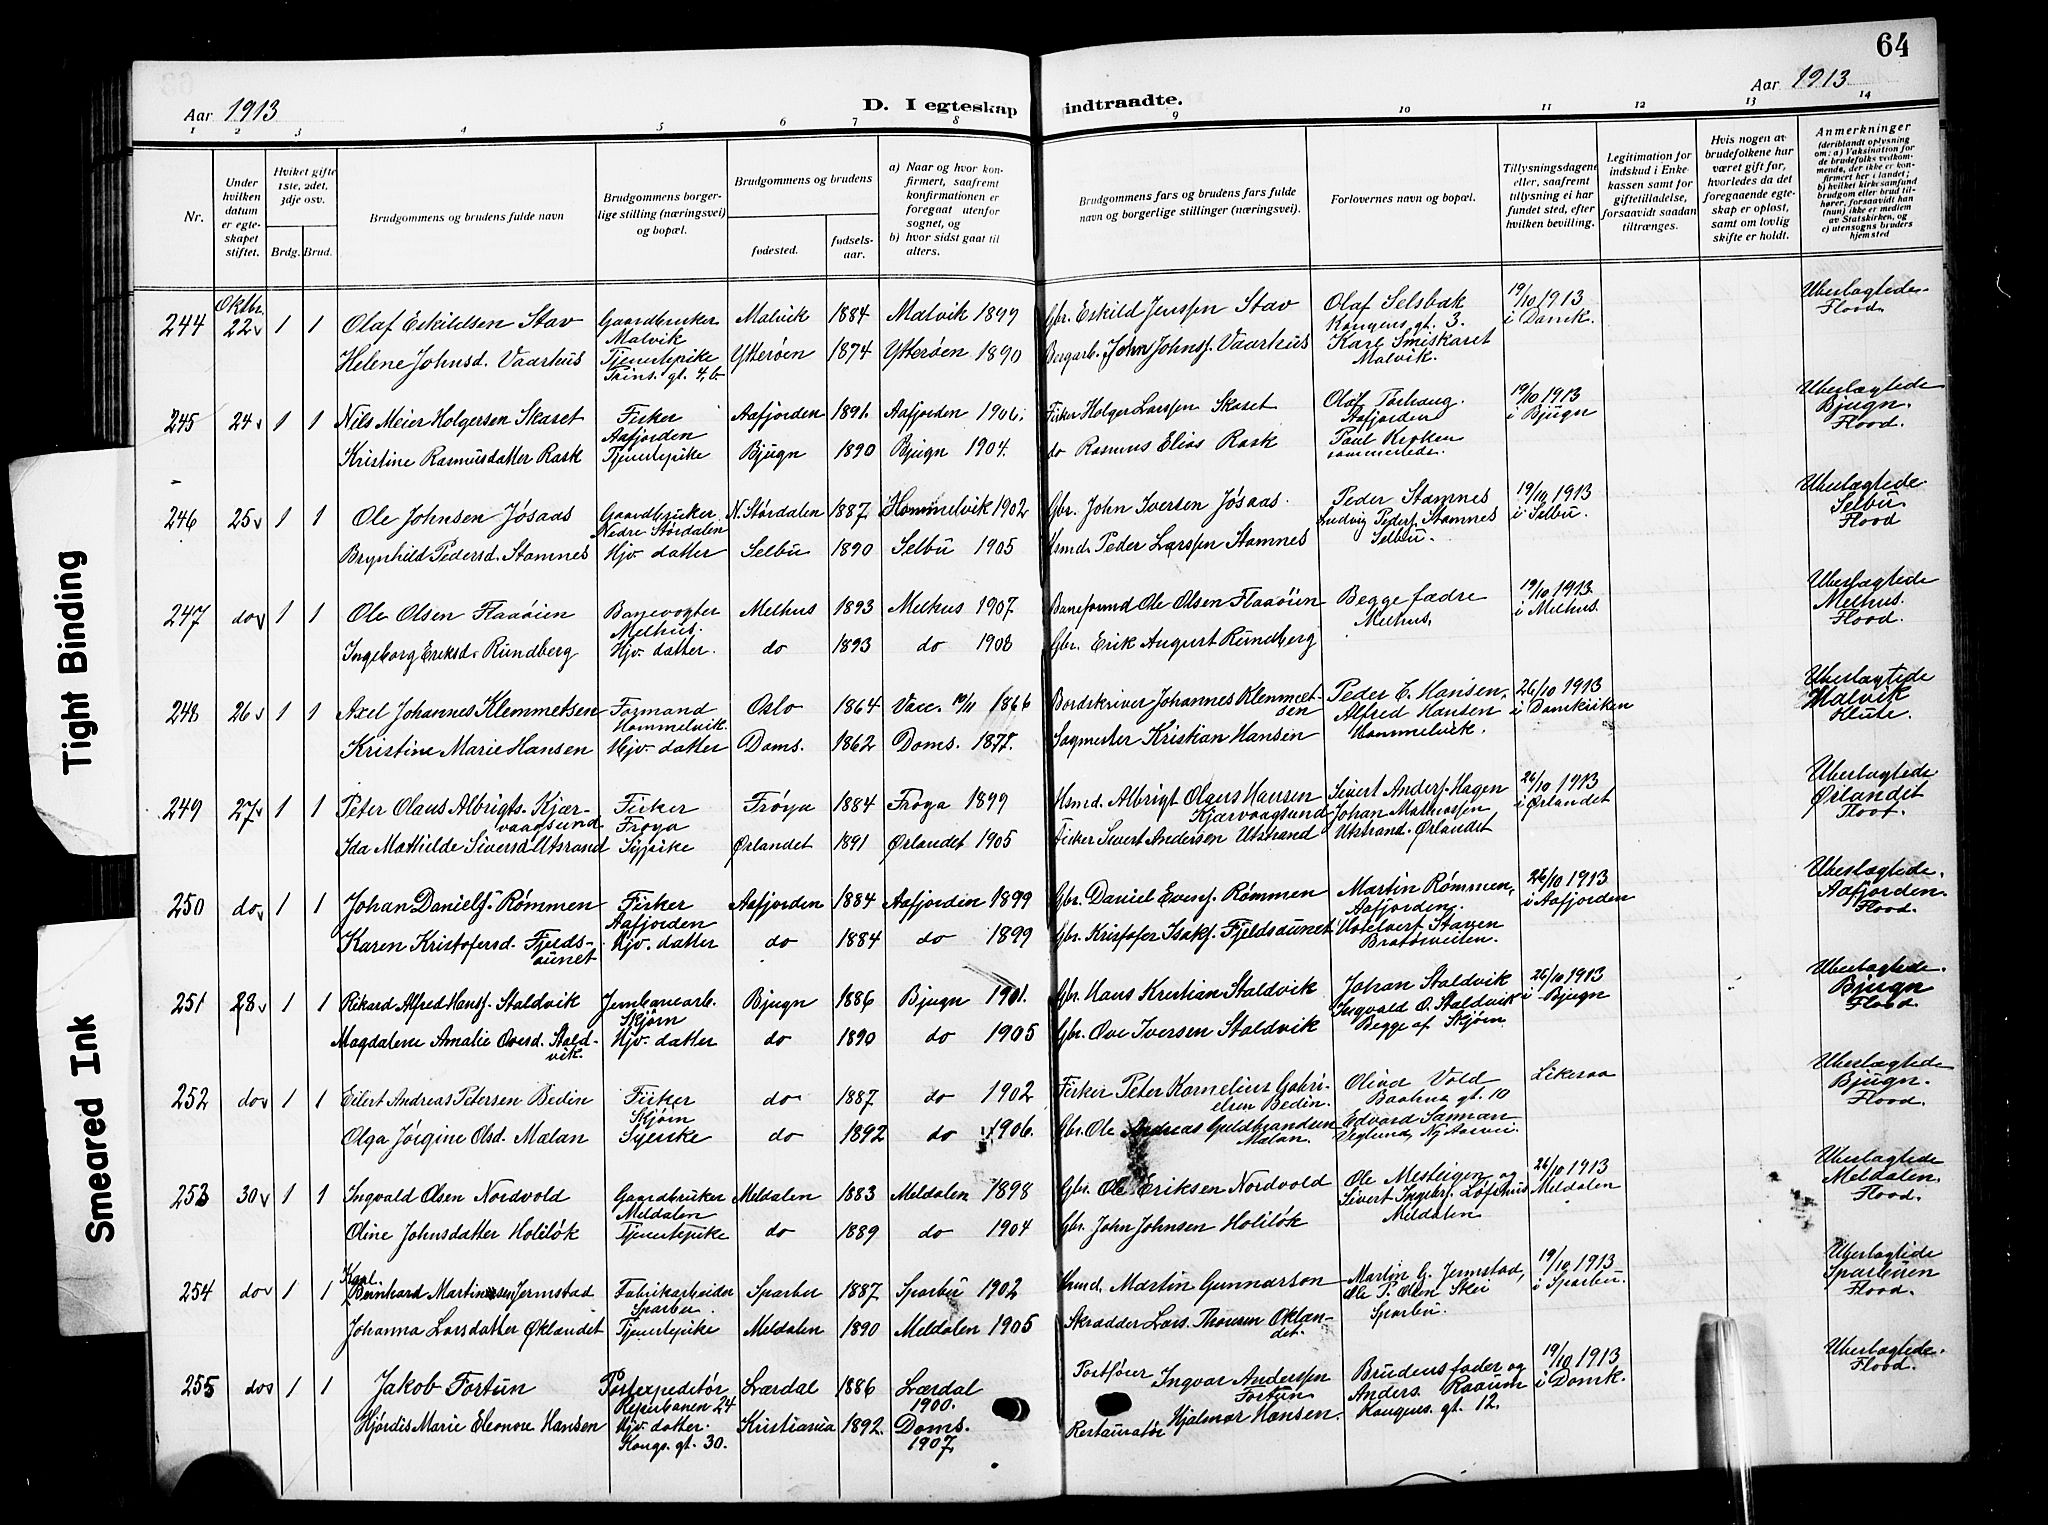 64
Aar 1913
D. I egteskap indtraadte.
Aar 1913
1 2 3 4 5 6 7 8 9 10 11 12 13 14
Nr.
Under hvilken datum er egteskapet stiftet.
Hvilket gifte 1ste, 2det, 3dje osv.
Brdg. Brud.
Brudgommens og brudens fulde navn
Brudgommens borgerlige stilling (næringsvei) og bopæl.
Brudgommens og brudens
fødested.
fødselsaar.
a) Naar og hvor konfirmert, saafremt konfirmationen er foregaat utenfor sognet, og
b) hvor sidst gaat til alters.
Brudgommens fars og brudens fars fulde navn og borgerlige stillinger (næringsvei).
Forlovernes navn og bopæl.
Tillysningsdagene eller, saafremt tillysning ei har fundet sted, efter hvilken bevilling.
Legitimation for indskud i Enkekassen samt for giftetilladelse, forsaavidt saadan tiltrænges.
Hvis nogen av brudefolkene har været gift før, hvorledes da det foregaaende egteskap er opløst, samt om lovlig skifte er holdt.
Anmerkninger
(deriblandt oplysning om: a) Vaksination for de brudefolks vedkommende, der ikke er konfirmert her i landet; b) hvilket kirkesamfund brudgom eller brud tilhører, forsaavidt han (hun) ikke er medlem av Statskirken, og c) utensogns bruders hjemsted
244 Oktbr. 22 1 1 Olaf Eskildsen Stav Gaardbruker Malvik Malvik 1884 Malvik 1899 Gbr. Eskild Jenssen Stav Olaf Selsbak Kongens gt. 3. 19/10 1913 i Domk. Uberlagtede Flood.
Helene Johnsd. Vaarhus Tjenestepike Prins. gt. 4, b. Ytterøen 1874 Ytterøen 1890 Bergarb. John Johns. Vaarhus Karl Smiskaret Malvik.
245 24 1 1 Nils Meier Holgersen Skaset Fisker Aafjorden Aafjorden 1891. Aafjorden 1906. Fisker Holger Larssen Skaset Olaf Torhaug Aafjorden 19/10 1913 i Bjugn Uberlagtede Bjugn. Flood.
Kristine Rasmusdatter Rask Tjenestepike Bjugn 1890 Bjugn 1904. do Rasmus Elias Rask Paul sammesteds.
246 25 1 1 Ole Johnsen Jøsaas Gaardbruker Nedre Størdalen N. Størdalen 1887 Hommelvik 1902 Gbr. John Iversen Jøsaas. Peder Stamnes 19/10 1913 i Selbu. Uberlagtede Selbu. Flood
Brynhild Pedersd. Stamnes Hjv. datter Selbu 1890 Selbu 1905 Hsmd. Peder Larssen Stamnes Ludvig Peders. Stamnes Selbu.
247 do 1 1 Ole Olsen Flaaøien Banevogter Melhus. Melhus 1893 Melhus 1907 Baneformand Ole Olsen Flaaøien Begge fædre Melhus. 19/10 1913 i Melhus. Uberlagtede Melhus. Flood.
Ingeborg Eriksd. Rundberg Hjv. datter. do 1893 do 1908 Gbr. Erik August Rundberg
248 26 1 1 Axel Johannes Klemmetsen Formand Hommelvik. Oslo 1864 Vacc. 10/11 1866 Bordskriver Johannes Klemmetsen Peder C. Hansen, 26/10 1913 i Domkirken Uberlagtede Malvik Klute.
Kristine Marie Hansen Hjv. datter Doms. 1862 Doms. 1877. Sagmester Kristian Hansen Alfred Hansen Hommelvik.
249 27 1 1 Peter Olaus Albrigts. Kjærvaagsund Fisker Frøya Frøya 1884 Frøya 1899 Hsmd. Albrigt Olaus Hansen Kjærvaagsund Sivert Anders. Hagen 26/10 1913 i Ørlandet Uberlagtede Ørlandet Flood.
Ida Mathilde Siversd. Utstrand Sypike Ørlandet 1891 Ørlandet 1905 Fisker Sivert Andersen Utstrand Johan Mathiassen Utstrand. Ørlandet
250 do 1 1 Johan Daniels. Rømmen Fisker Aafjorden Aafjorden 1884 Aafjorden 1899 Gbr. Daniel Evens. Rømmen Martin Rømmen, Aafjorden. 26/10 1913 i Aafjorden Uberlagtede. Aafjorden. Flood.
Karen Kristofersd. Fjeldsaunet Hjv. datter do 1884 do 1899 Gbr. Kristofer Isaks. Fjeldsaunet Hotelvert Stavsen Bratørveiten.
251 28 1 1 Rikard Alfred Hans. Staldvik Jernbanearb. Skjørn Bjugn 1886 Bjugn 1901. Gbr. Hans Kristian Staldvik Johan Staldvik 26/10 1913 i Bjugn Uberlagtede. Bjugn Flood.
Magdalene Amalie Ovesd. Staldvik. Hjv. datter do 1890 do 1905 Gbr. Ove Iversen Staldvik Ingvald O. Staldvik Begge af Skjørn
252 do 1 1 Eilert Andreas Petersen Bedin Fisker Skjørn do 1887 do 1902 Fisker Peter Kornelius Gabrielsen Bedin. Olina Vold Baahus gt. 10 Likesaa Uberlagtede Bjugn. Flood.
Olga Jørgine Olsd. Malan Syerske do 1892 do 1906. Gbr. Ole Andreas Guldbrandsen Malan. Edvard
253 30 1 1 Ingvald Olsen Nordvold Gaardbruker Meldalen Meldalen 1883 Meldalen 1898 Gbr. Ole Eriksen Nordvold Ole Mesteigen og 26/10 1913 Meldalen Uberlagtede Meldalen. Flood.
Oline Johnsdatter Holiløk Tjenestepike do 1889 do 1904 Gbr. John Johnsen Holiløk Sivert Ingebr. Løfshus Meldalen
254 do 1 1 Karl Bernhard Martinsen Jermstad Fabrikarbeider Sparbu. Sparbu 1887 Sparbu 1902 Hsmd. Martin Gunnarson Martin G. Jermstad, 19/10 1913 i Sparbu. Uberlagtede Sparbuen Flood.
Johanna Larsdatter Øklandet Tjenestepike Meldalen 1890 Meldalen 1905 Skrædder Lars Thonsen Øklandet. Ole P. Olsen Skei Sparbu.
255 do 1 1 Jakob Fortun Postexpeditør Reperbanen 24 Lærdal 1886 Lærdal 1900. Postfører Ingvar Anderssen Fortun Brudens fader og 19/10 1913 i Domk. Uberlagtede. Flood.
Hjørdis Marie Eleonore Hansen Hjv. datter. Kongs. gt. 30. Kristiania 1892. Doms. 1907 Restauratør Hjalmar Hansen. Anders Raaum Kongens gt. 12.
Tight Binding
Smeared Ink